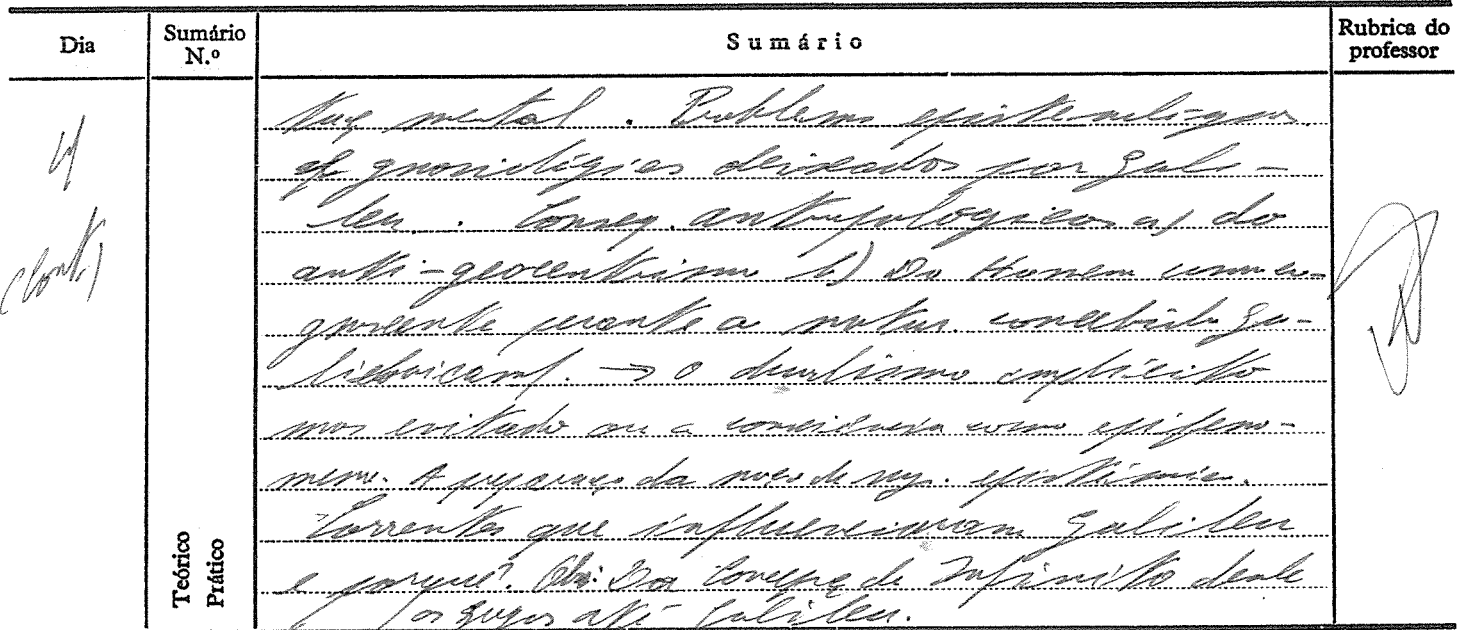 Dia
Sumário N.º
Sumário
Rubrica do professor
4
(Cont.)
mental. Problemas epistemológicos
e gnosiológicos deixados por Gali-
leu. Conseq. antropológicas a) do
anti-geocentrismo b) Do Homem como
perante a natur. concebida Ga-
lileicam/. → O dualismo implícito
mas evitado ou a consciência como epifenó-
meno. A da de
Correntes que influenciaram Galileu
e porquê. Obs: Da Concepç. de Infinito desde
os gregos até Galileu.
Teórico
Prático